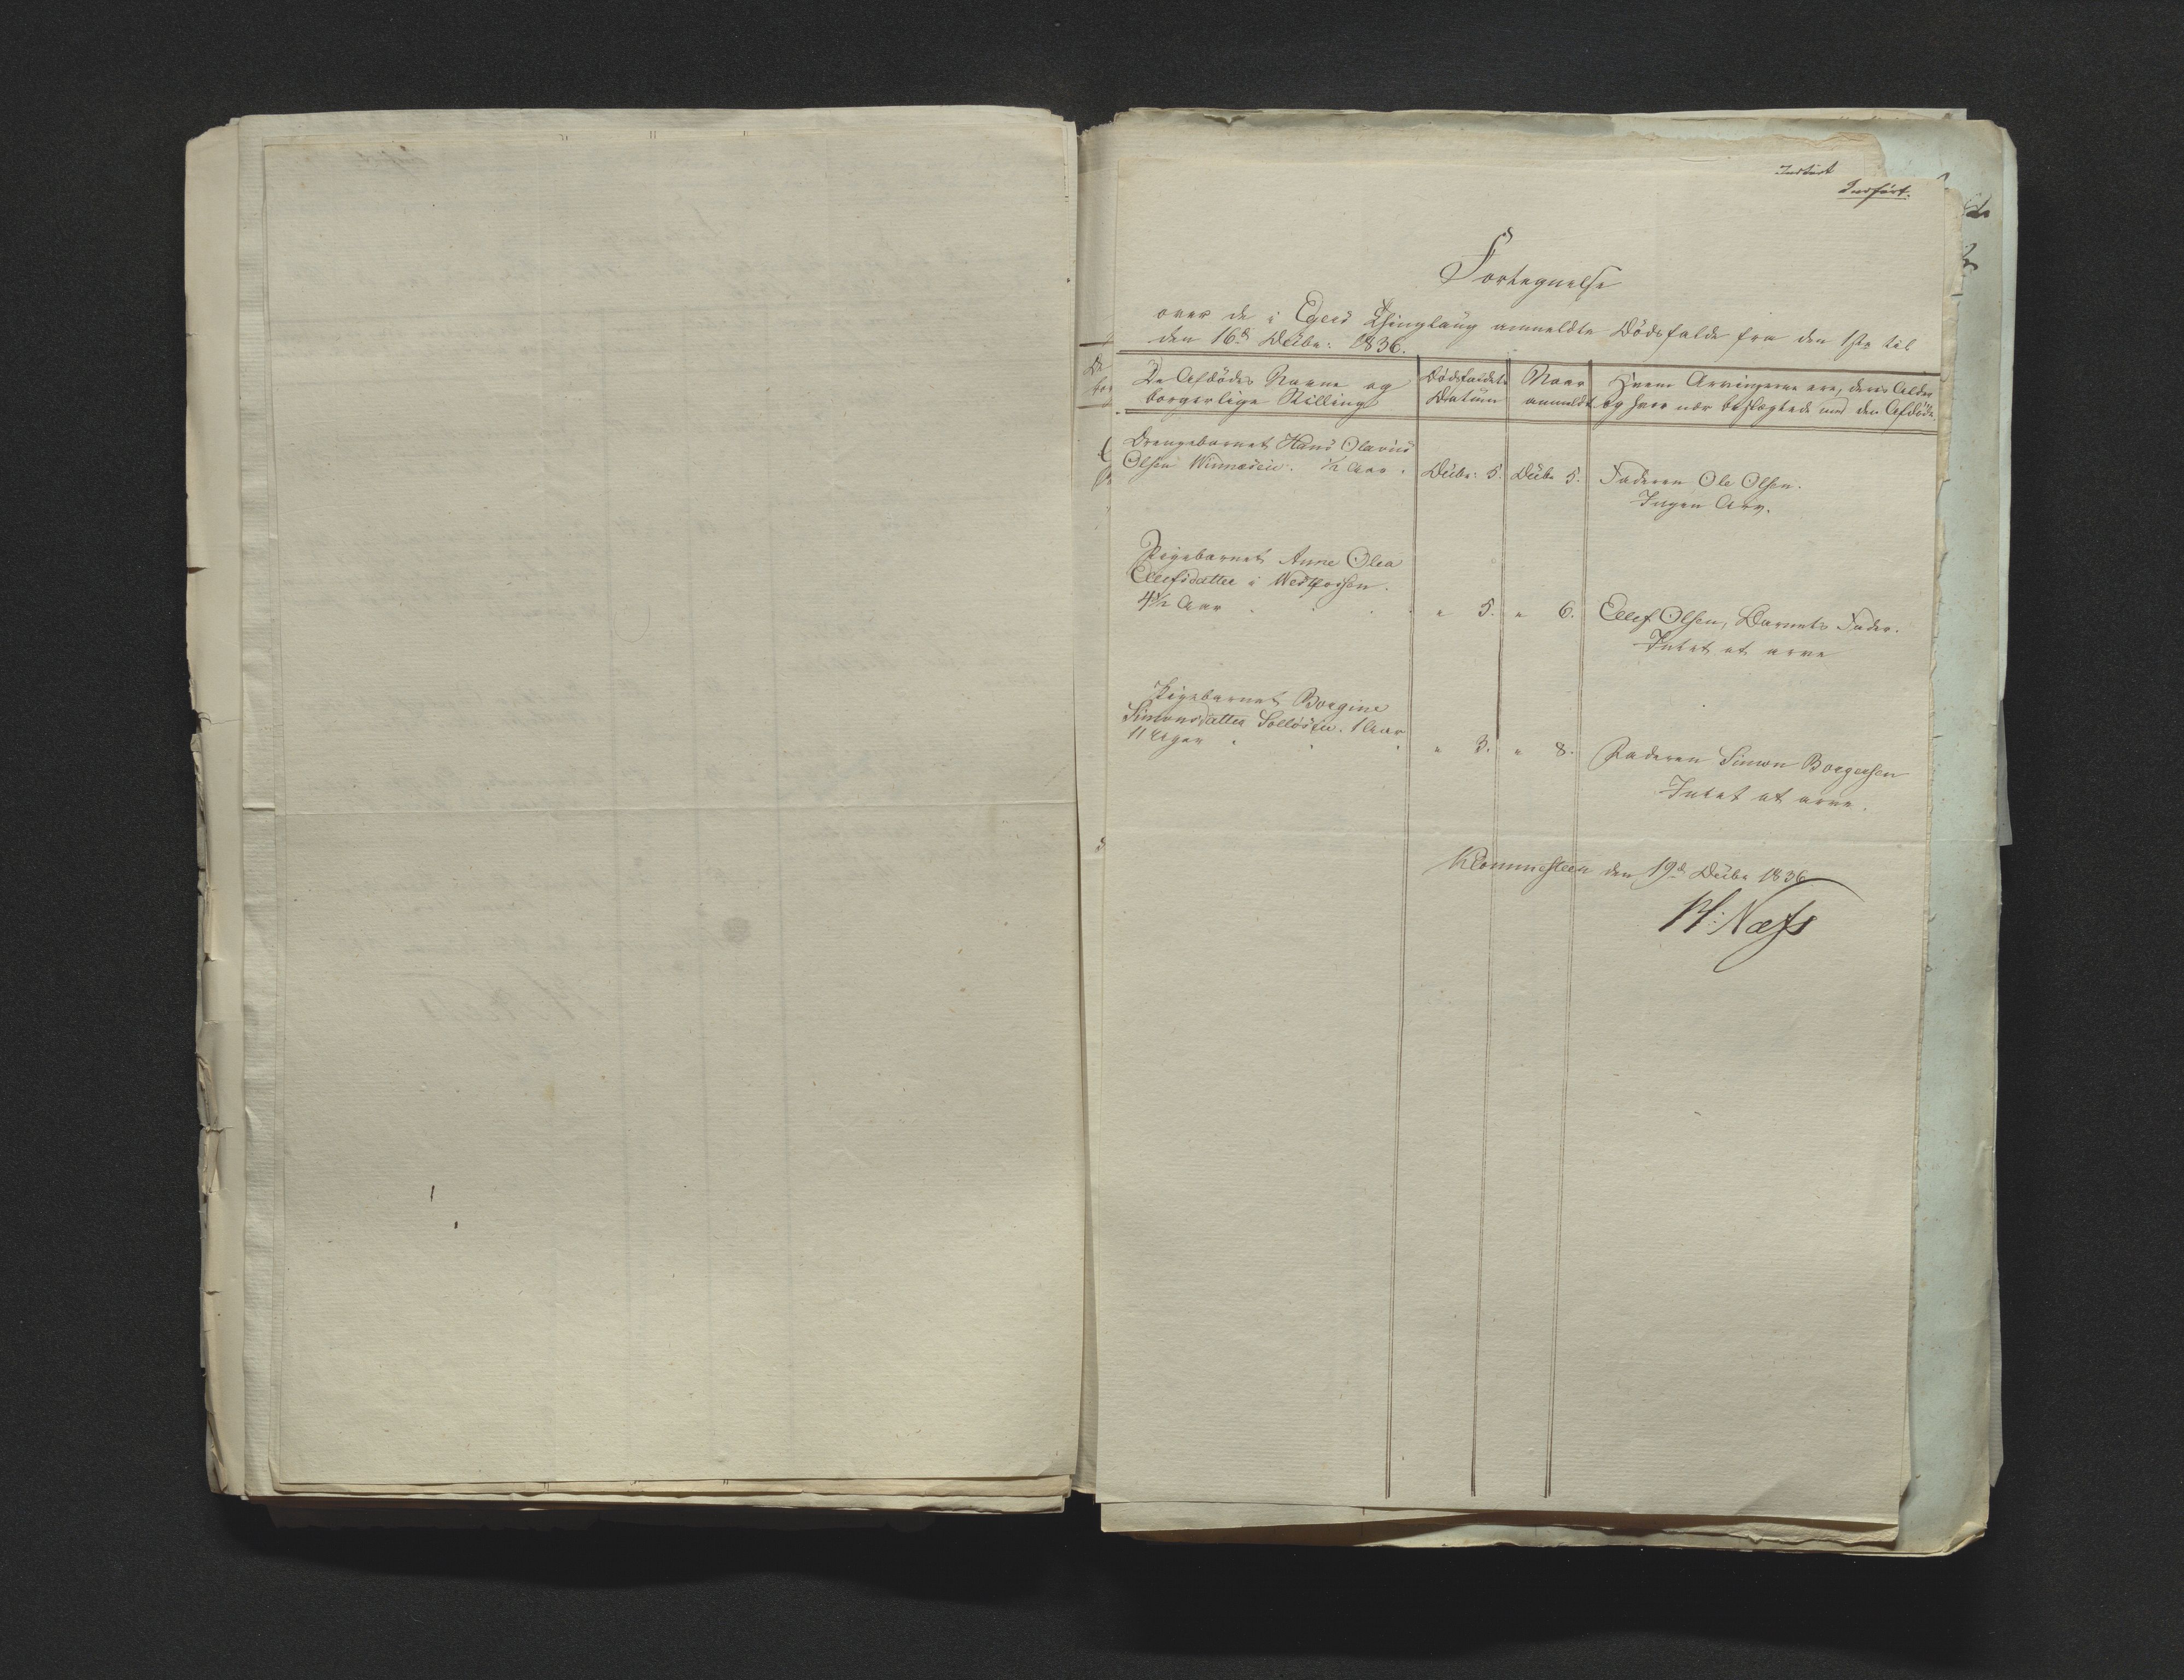 Indført
Indført.
Fortegnelse
over de i Egers Thinglaug anmeldte Dödsfalde fra den 1ste til
den 16de Decbr: 1836.
De Afdödes Navne og
borgerlige Stilling
Dödsfaldets
Datum
Naar
anmeldt
Hvem Arvingerne ere, deres Alder
og hvor nær beslægtede med den Afdöde.
Drengebarnet Hans Olavus
Olsen ½ Aar.
Decbr: 5.
Decbr 5.
Faderen Ole Olsen.
Ingen Arv.
Pigebarnet Anne Olea
Ellefsdatter i Vestfossen.
4½ Aar
" 5.
" 6.
Ellef Olsen, Barnets Fader.
Intet at arve
Pigebarnet Borgine
Simonsdatter 1 Aar
11 Uger
" 3.
" 8.
Faderen Simon Borgersen
Intet at arve.
Klommesteen den 19de Decbr 1836
H: Næss